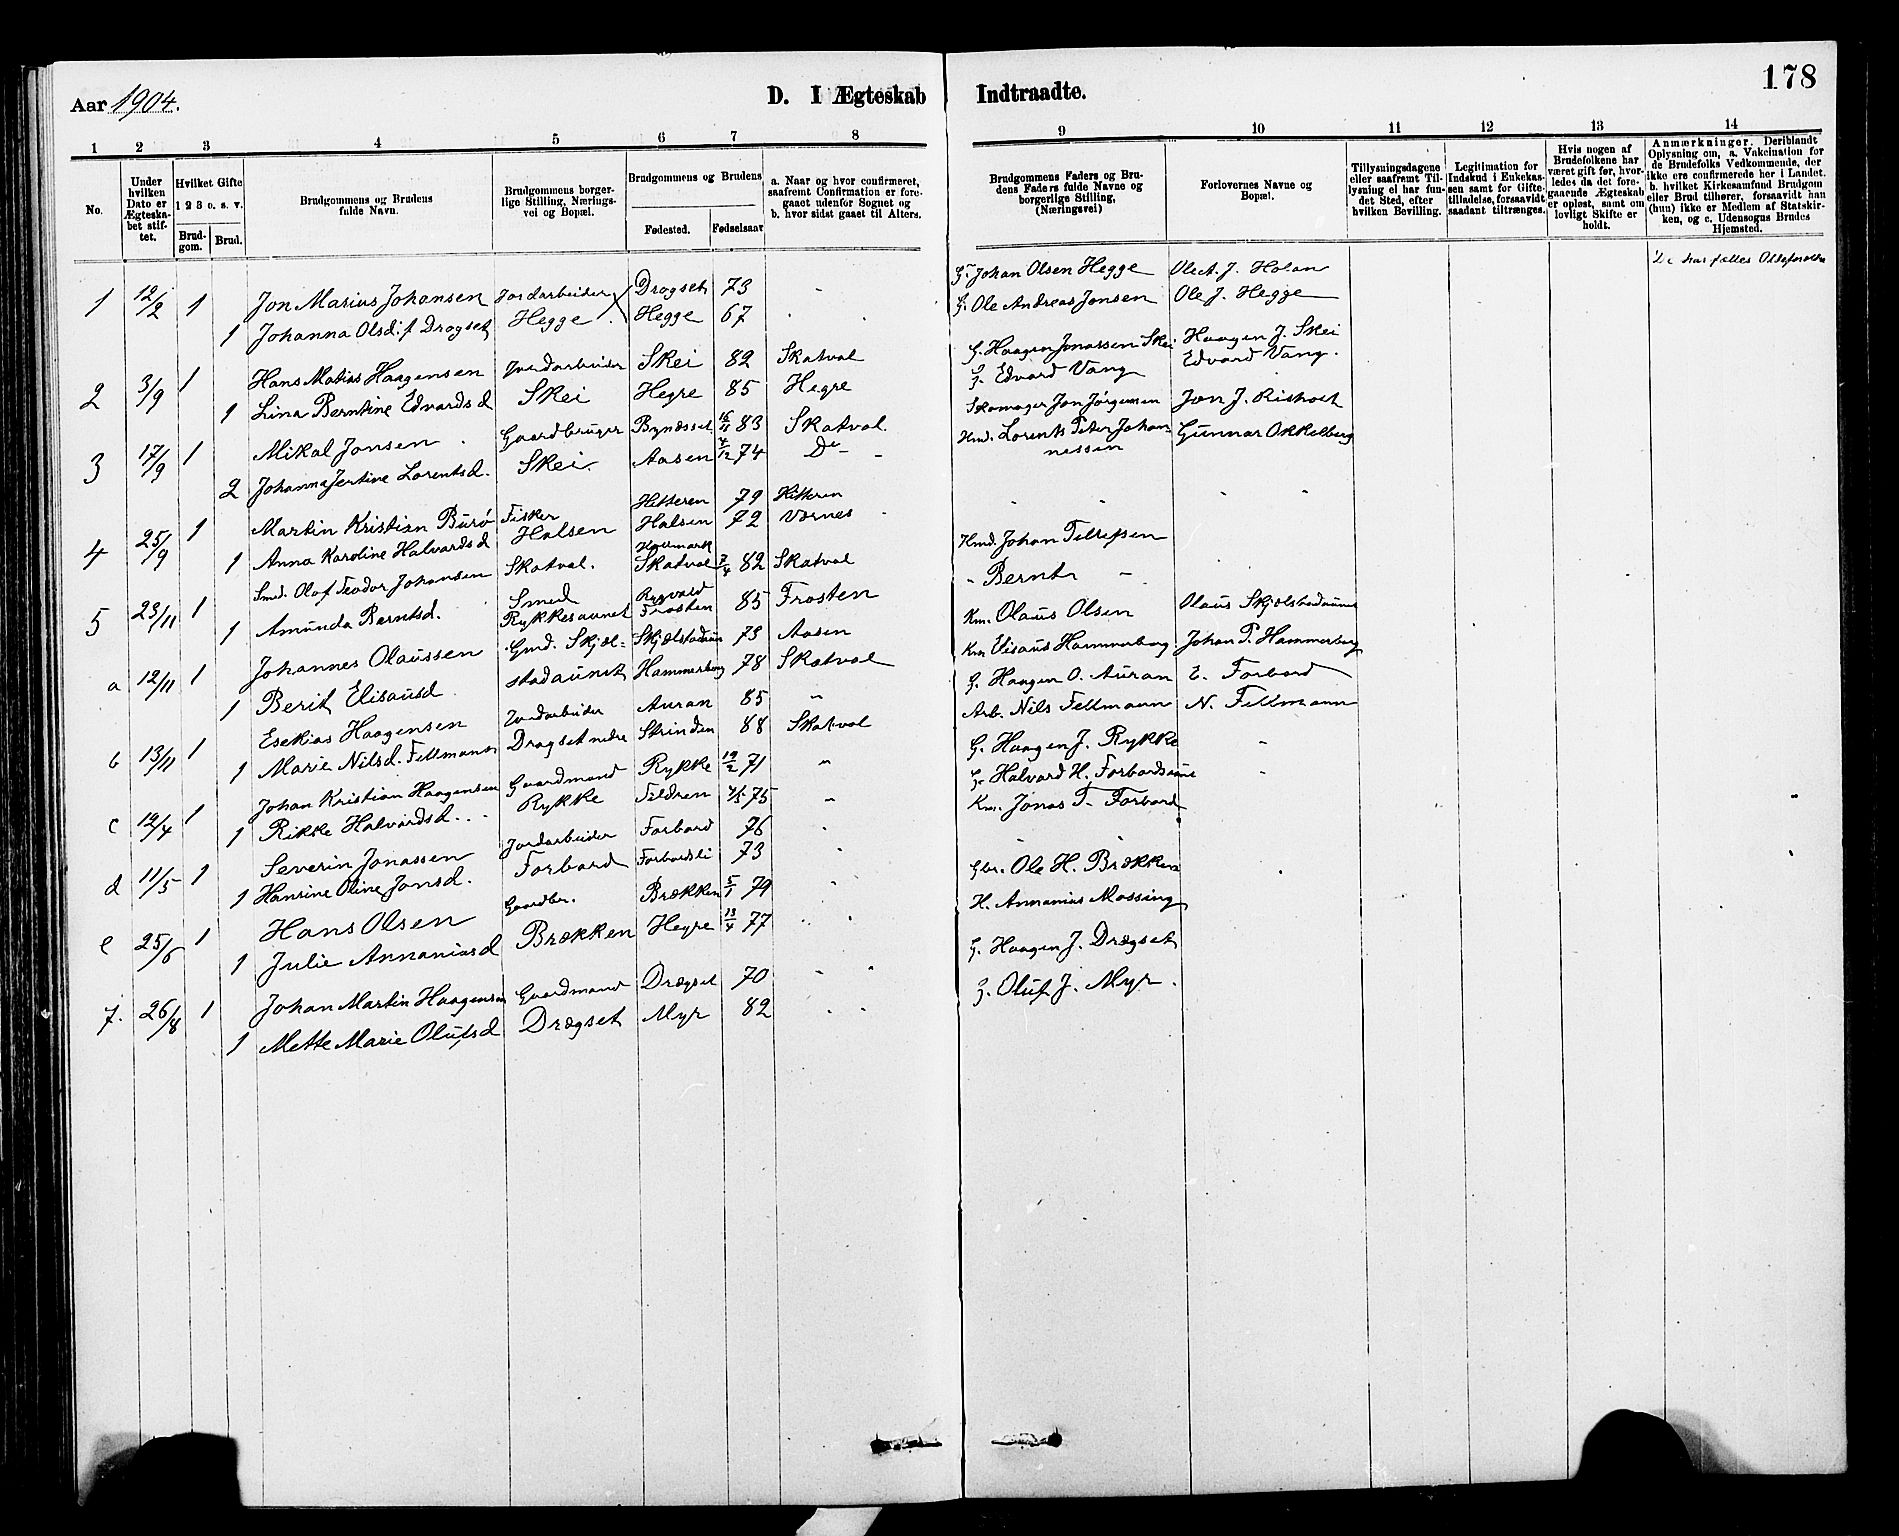 178
Aar 1904.
D. I Ægteskab Indtraadte.
1 2 3 4 5 6 7 8 9 10 11 12 13 14
No.
Under hvilken Dato er Ægteskabet stiftet.
Hvilket Gifte 1 2 3 o. s. v.
Brudgom. Brud.
Brudgommens og Brudens fulde Navn.
Brudgommens borgerlige Stilling, Næringsvei og Bopæl.
Brudgommens og Brudens
Fødested. Fødselsaar
a. Naar og hvor confirmeret, saafremt Confirmation er foregaaet udenfor Sognet og b. hvor sidst gaaet til Alters.
Brudgommens Faders og Brudens Faders fulde Navne og borgerlige Stilling, (Næringsvei)
Forlovernes Navne og Bopæl.
Tillysningsdagene eller saafremt Tillysning ei har fundet Sted, efter hvilken Bevilling.
Legitimation for Indskud i Enkekassen samt for Giftetilladelse, forsaavidt saadant tiltrænges.
Hvis nogen af Brudefolkene har været gift før, hvorledes da det foregaaende Ægteskab er opløst, samt om lovligt Skifte er holdt.
Anmærkninger. Deriblandt Oplysning om, a. Vakcination for de Brudefolks Vedkommende, der ikke ere confirmerede her i Landet. b. hvilket Kirkesamfund Brudgom eller Brud tilhører, forsaavidt han (hun) ikke er Medlem af Statskirken, og c. Udensogns Brudes Hjemsted.
1 12/2 1 Jon Marius Johansen Jordarbeider Drogset 73 G. Johan Olsen Hegge Ole A. J. Holan De har fælles Oldeforældre
1 Johanna Olsd. f. Drogset Hegge Hegge 67 G. Ole Andreas Jonsen Ole J. Hegge
2 3/9 1 Hans Matias Haagensen Jordarbeider Skei 82 Skatval G. Haagen Jonassen Skei Haagen J. Skei
1 Lina Berntine Edvardsd Skei Hegre 85 Hegre G. Edvard Vang Edvard Vang.
3 17/9 1 Mikal Jonsen Gaardbruger Bynæsset 16/11 83 Skatval. Skomager Jon Jørgensen Jon J. Risholt
2 Johanna Jentine Lorentsd. Skei. Aasen 4/12 74 Do Hmd. Lorents Peter Johannessen Gunnar Okkelberg
4 25/9 1 Martin Kristian Burø Fisker Hitteren 79 Hitteren
1 Anna Karoline Halvardsd Halsen Halsen 72 Værnes
5 23/11 1 Smed. Olof Teodor Johansen Skatval. Skatval 7/4 82 Skatval Hmd. Johan Tellefsen
1 Amunda Berntsd. Smed Rykkesaunet Frosten 85 Frosten - Bernt -
a 12/11 1 Johannes Olaussen Gmd. Skjælstadaunet Skjelstadaun 73 Aasen Km. Olaus Olsen Olaus Skjælstadaune
1 Berit Elisausd Hammerberg 78 Skatval Km Elisaus Hammerberg Johan P. Hammerberg
b 13/11 1 Esekias Haagensen Jordarbeider Auran 85 " G. Haagen O. Auran E. Forbord
1 Marie Nilsd. Fellmann Drogset nedre Strinden 88 Skatval Arb. Nils Fellmann N. Fellmann
c 12/4 1 Johan Kristian Haagensen Gaardmand Rykke 19/2 71 " G. Haagen J. Rykke
1 Rikke Halvardsd. Rykke Tildren 4/5 75 " G. Halvard H. Forbordsaune
d 11/5 1 Severin Jonassen Jordarbeider Forbord 76 Km. Jonas T. Forbord
1 Hansine Oline Jonsd. Forbord Forbordsli 73
e 25/6 1 Hans Olsen Gaardbr. Brækken 5/1 79 Gbr. Ole H. Brækken
1 Julie Annaniasd Brækken Hegre 13/4 77 H. Annanias Mossing
7. 26/8 1 Johan Martin Haagensen Gaardmand Drægset 70 G. Haagen J. Drægset
1 Mette Marie Olufsd Drægset Myr 82 G. Oluf J. Myr.